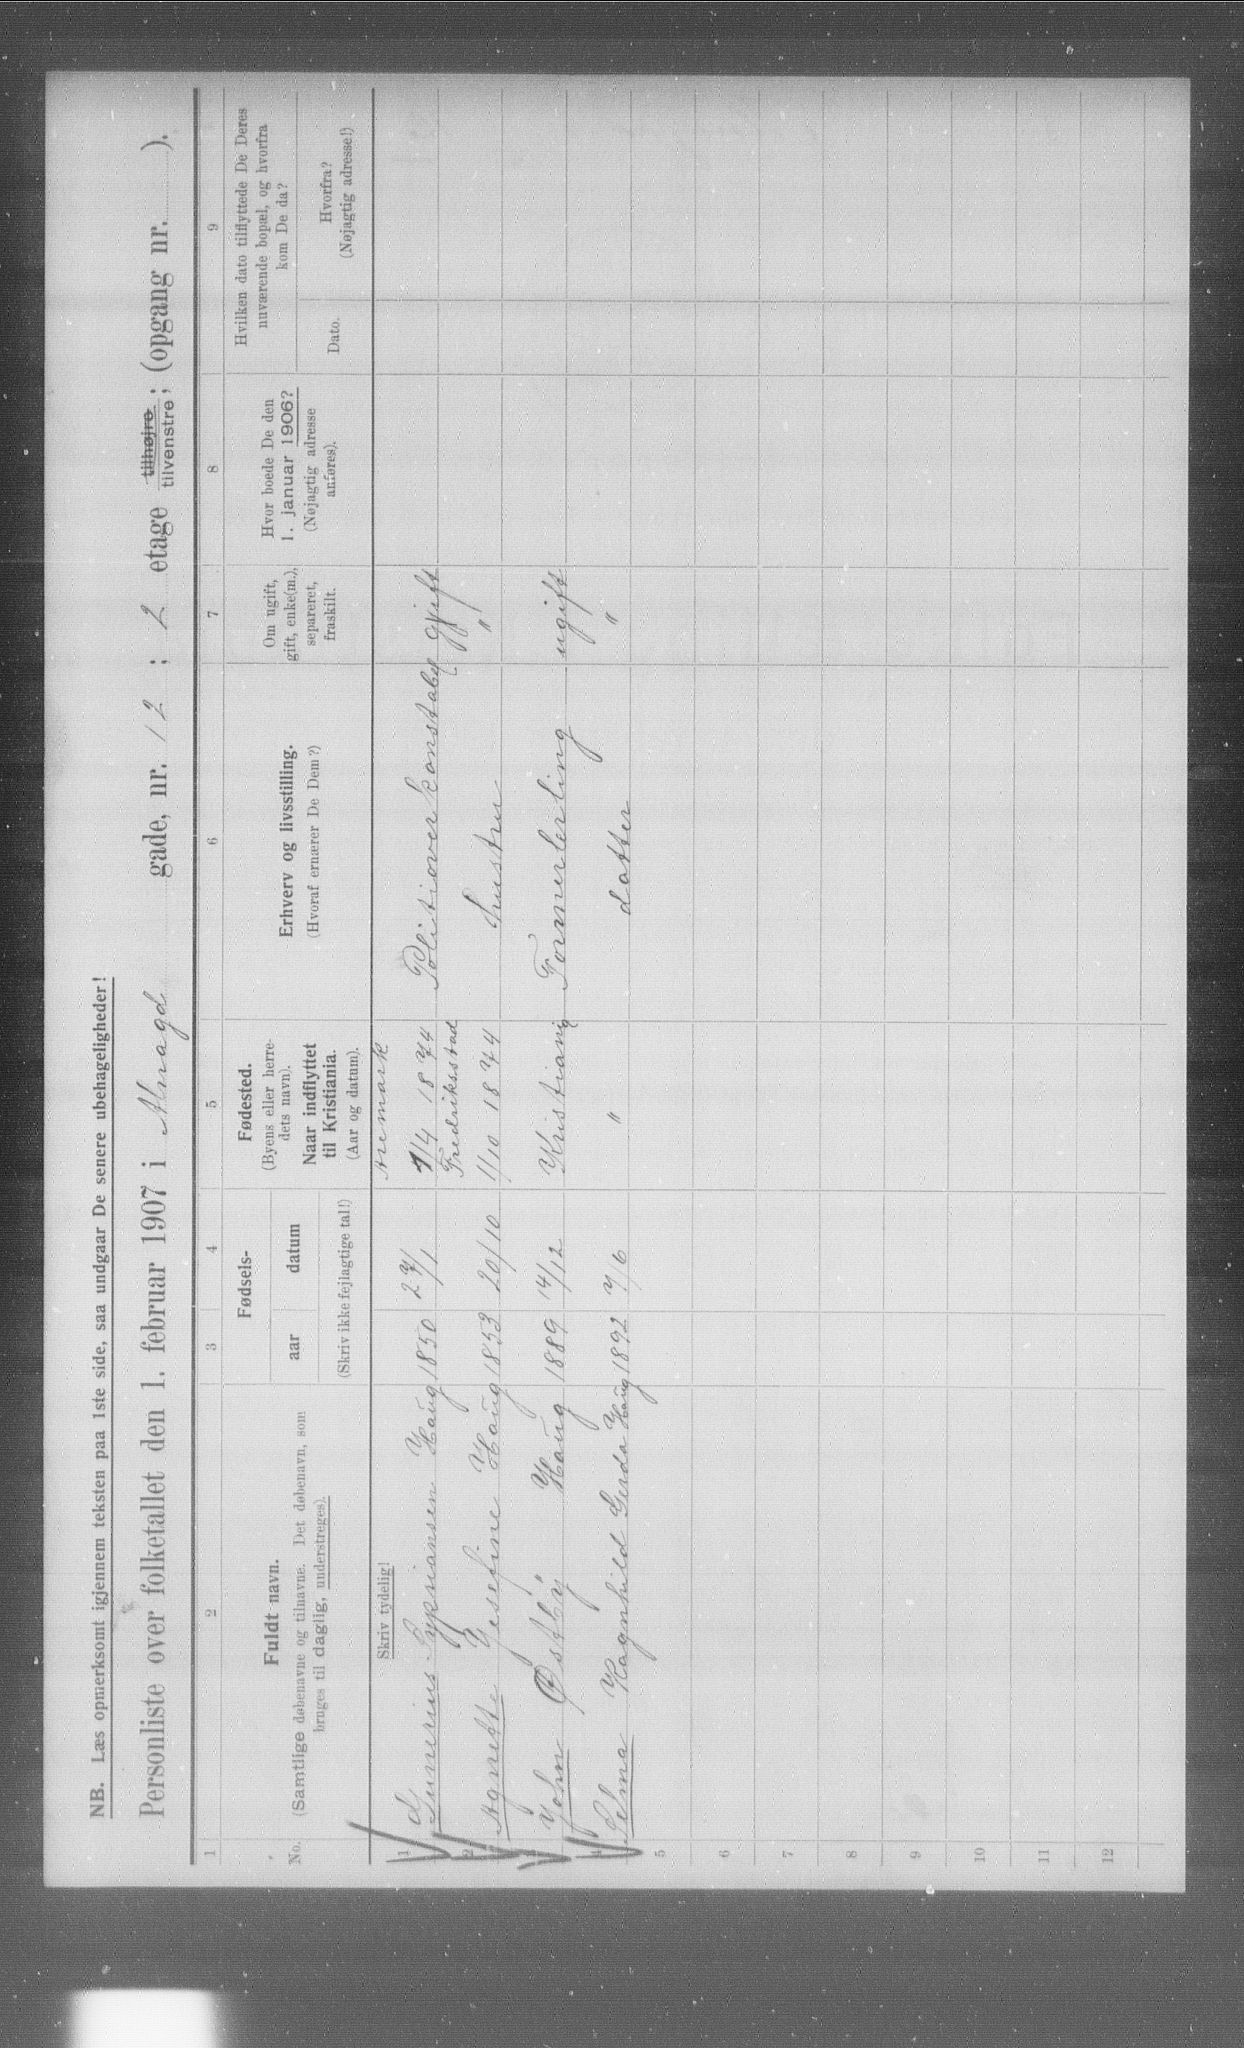 NB. Læs opmerksomt igjennem teksten paa 1ste side, saa undgaar De senere ubehageligheder!
Personliste over folketallet den 1. februar 1907 i Almagd gade, nr. 12 ; 2 etage tilhøjre tilvenstre ; (opgang nr. ).
1 2 3 4 5 6 7 8 9
No.
Fuldt navn.
(Samtlige døbenavne og tilnavne. Det døbenavn, som
bruges til daglig, understreges).
Skriv tydelig!
Fødsels-
aar datum
(Skriv ikke fejlagtige tal!)
Fødested.
(Byens eller herre-
dets navn).
Naar indflyttet
til Kristiania.
(Aar og datum).
Erhverv og livsstilling.
(Hvoraf ernærer De Dem?)
Om ugift,
gift, enke(m.),
separeret,
fraskilt.
Hvor boede De den
1. januar 1906?
(Nøjagtig adresse
anføres).
Hvilken dato tilflyttede De Deres
nuværende bopæl, og hvorfra
kom De da?
Dato.
Hvorfra?
(Nøjagtig adresse!)
Aremark
1 Haug 1850 27/1 1/4 1874 Politioverkonstabel gift
Fredriksstad
2 Agnette Josefine Haug 1853 20/10 1/10 1874 hustru "
3 John Østby Haug 1889 14/12 Kristiania Formerlerling ugift
4 Selma Ragnhild Gerda Haug 1892 7/6 " datter "
5
6
7
8
9
10
11
12